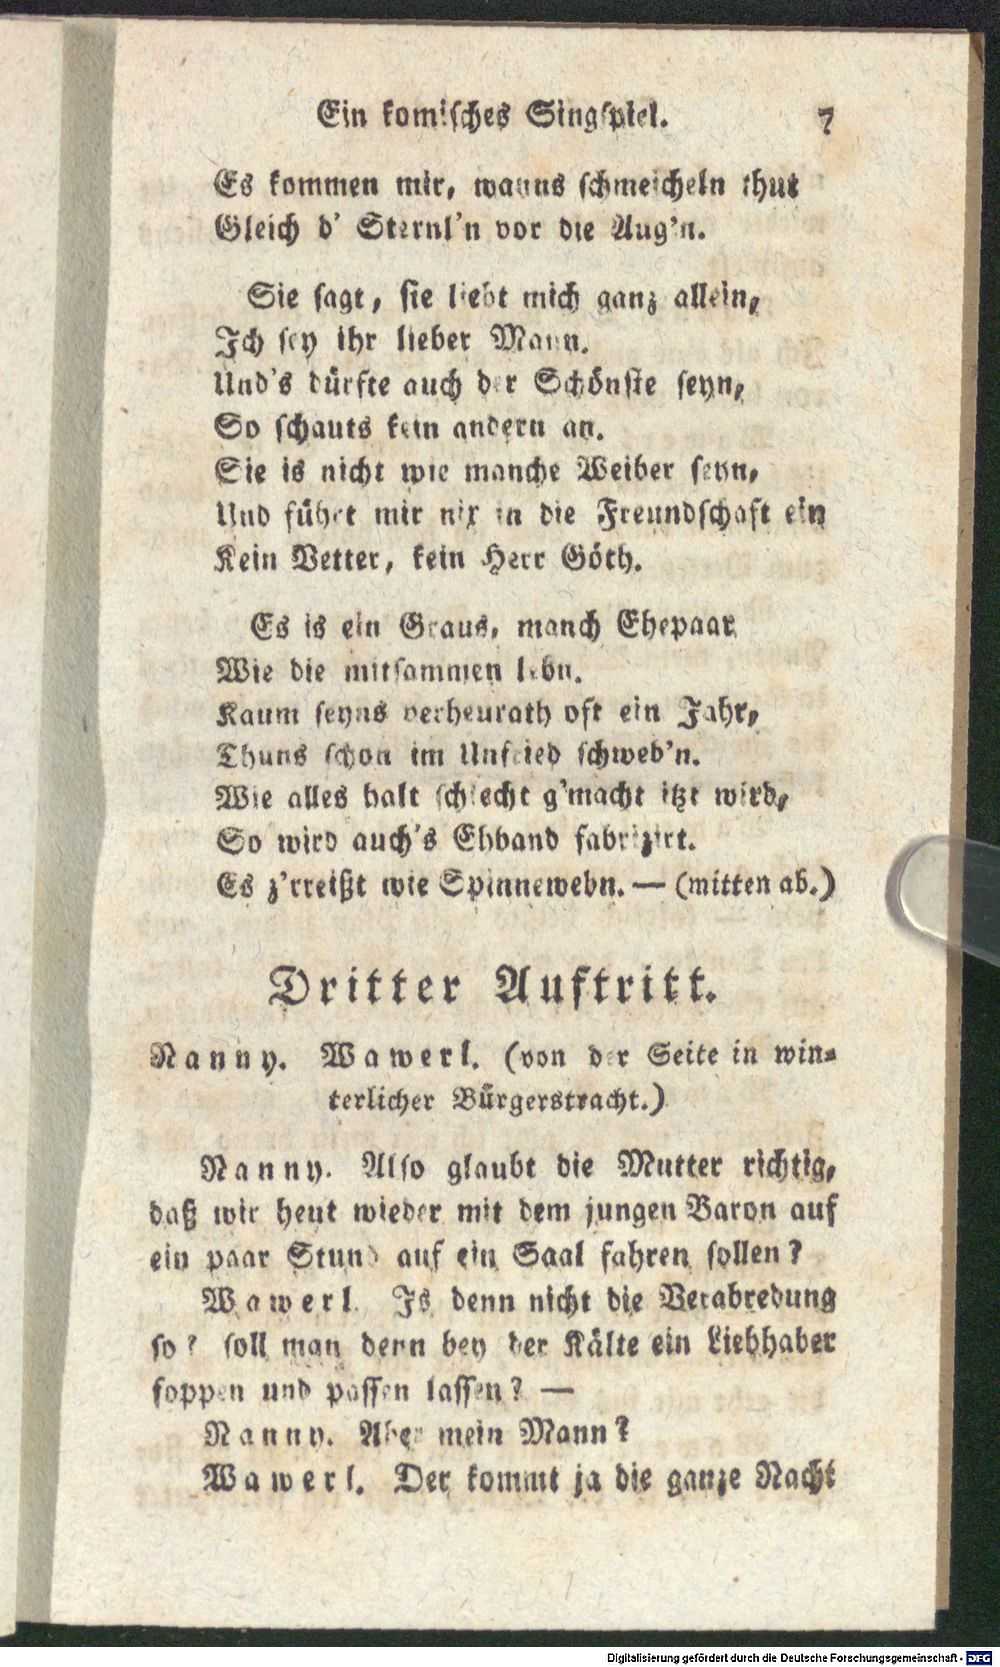 Ein komisches Singspiel. 7
Es kommen mir, wanns schmeicheln thut
Gleich d' Sternl'n vor die Aug'n.
Sie sagt, sie liebt mich ganz allein,
Ich sey ihr lieber Mann.
Und's dürfte auch der Schönste seyn,
So schauts kein andern an.
Sie is nicht wie manche Weiber seyn,
Und führt mir nix in die Freundschaft ein
Kein Vetter, kein Herr Göth.
Es is ein Graus, manch Ehepaar
Wie die mitsammen lebn.
Kaum seyns verheurath oft ein Jahr,
Thuns schon im Unfried schweb'n.
Wie alles halt schlecht g'macht itzt wird,
So wird auch's Ehband fabrizirt.
Es z'rreißt wie Spinnewebn. — (mitten ab.)
Dritter Auftritt.
Nanny. Wawerl. (von der Seite in win-
terlicher Bürgerstracht.)
Nanny. Also glaubt die Mutter richtig,
daß wir heut wieder mit dem jungen Baron auf
ein paar Stund auf ein Saal fahren sollen?
Wawerl. Is denn nicht die Verabredung
so? soll man denn bey der Kälte ein Liebhaber
foppen und passen lassen? —
Nanny. Aber mein Mann?
Wawerl. Der kommt ja die ganze Nacht
Digitalisierung gefördert durch die Deutsche Forschungsgemeinschaft - DFG